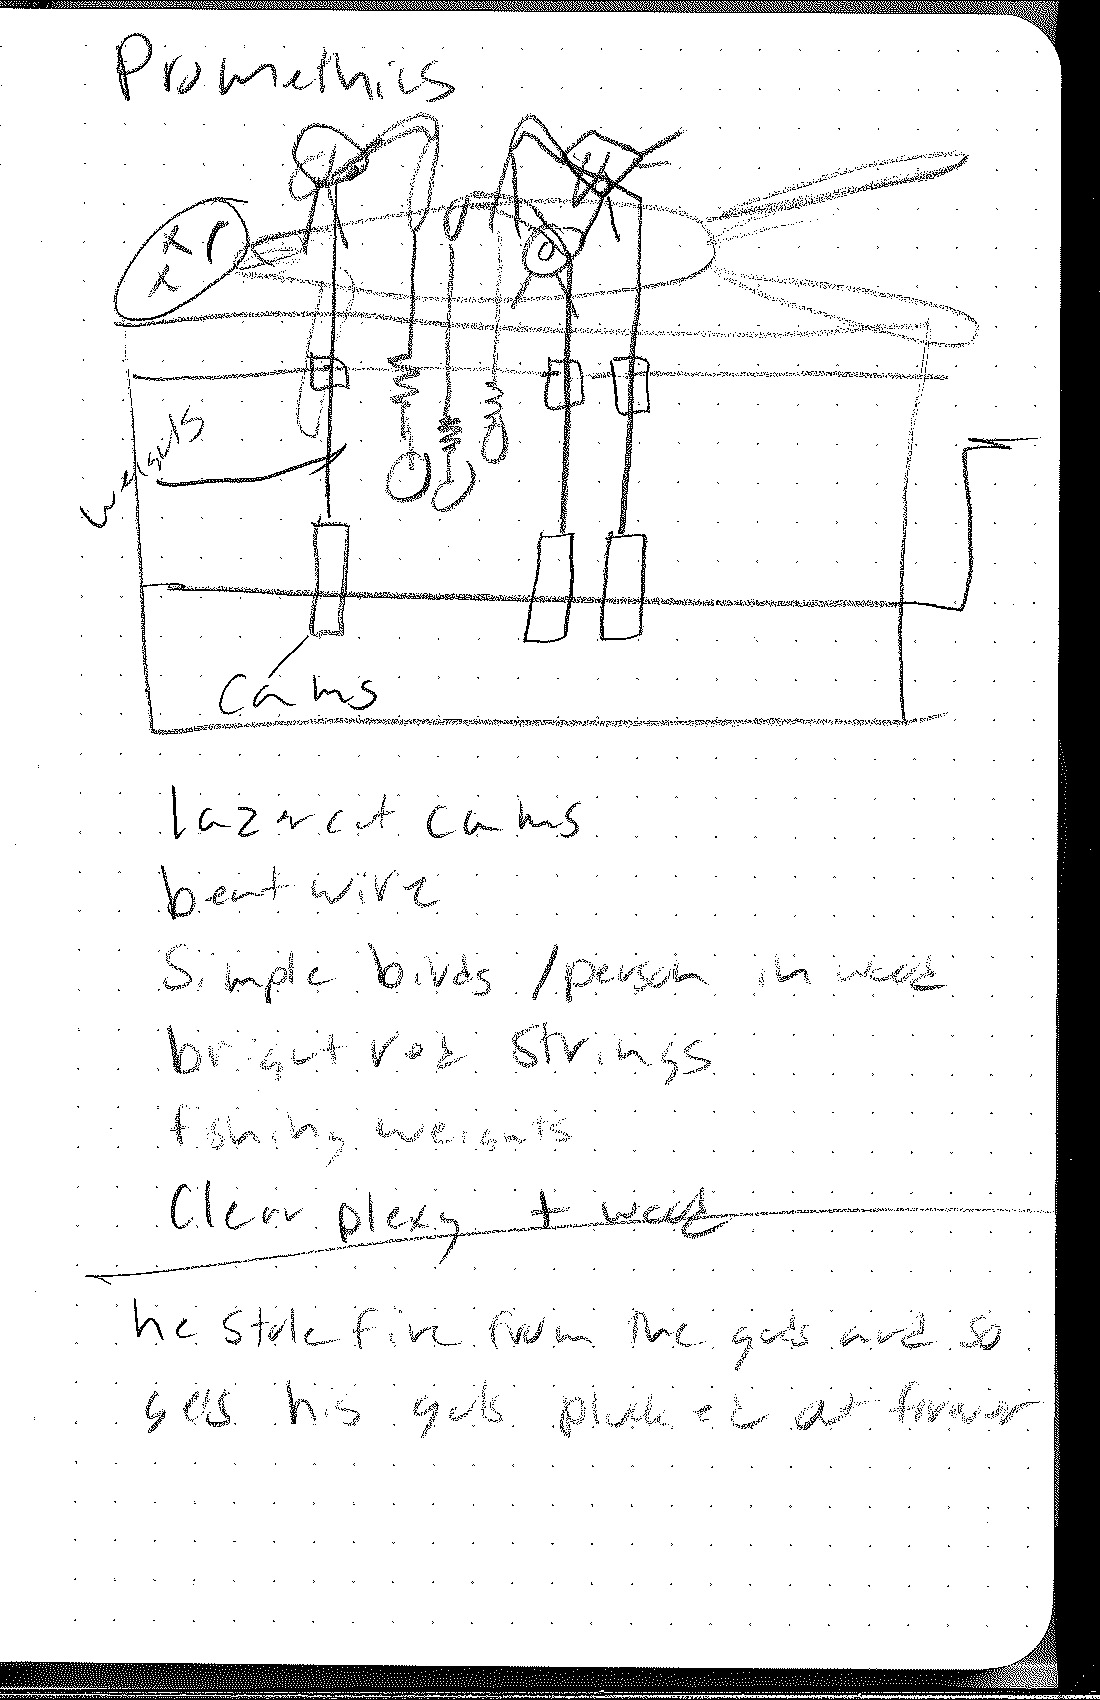 Promethius
weights
Cams
lazer cut cams
bent wire
Simple birds / person in wood
bright red strings
fishing weights
Clear plexy + wood
he stole fire from the gods and so
gets his guts plucked at forever